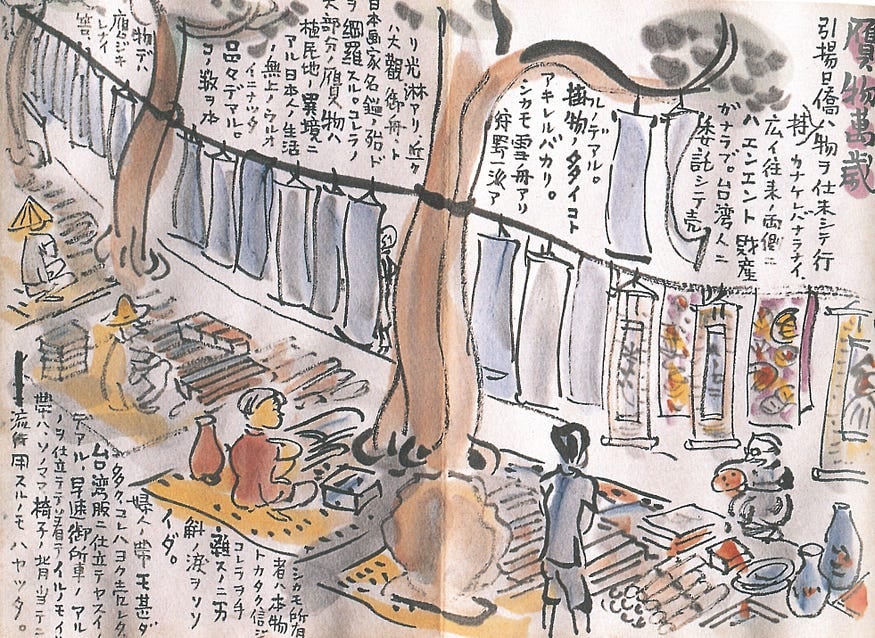 贋物萬歳
引揚日僑ハ物ヲ仕末シテ行
カナケレバナラナイ、
広イ往来ノ両側ニ
ハエンエント財産
ガナラブ。台湾人ニ
委託シテ売
ルノデアル。
掛物ノタダイコト
アキレルバカリ。
シカモ雪舟アリ
狩野派ア
リ光淋アリ、近ク
ハ大觀御舟ト
日本画家名鑑ヲ殆ド
ヲ網羅スル。コレラノ
大部分ノ贋物ハ
植民地ノ異境ニ
アル日本人ノ生活
ノ無上ノウルオ
イニナッタ
品々デアル。
コノ数ヲ本
物デハ
レナイ
筈
シカモ所有
者ハ本物
トカタク信ジ
コレラヲ手
離スノニ万
斛ノ涙ヲソソ
イダ。
婦人ノ帯モ甚ダ
多ク、コレハヨク売レタ
台湾服ニ仕立テヤスイノ
デアル、早速御所車ノアル
ノヲ仕立テテ着テイルノモイ
帯ハソノママ椅子ノ背当テニ
流用スルノモハヤッタ。